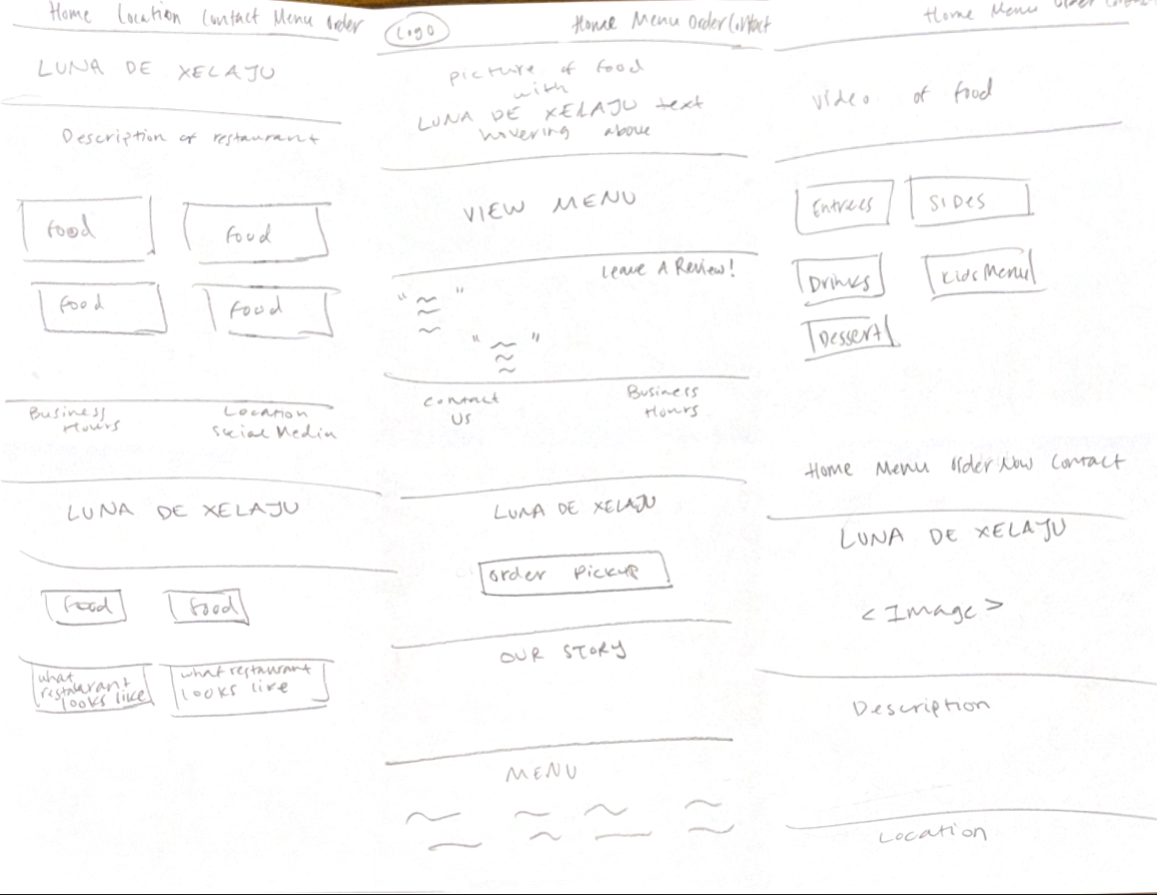 Home Location Contact Menu Order
LUNA DE XELAJU
Description of restaurant
Food
Food
Food
Food
Business
Hours
Location
Social Media
LUNA DE XELAJU
Food
Food
what
restaurant
looks like
what restaurant
looks like
Logo
Home Menu Order Contact
picture of food
with
LUNA DE XELAJU text
hovering above
VIEW MENU
Leave A Review!
" "
" "
Contact
Us
Business
Hours
LUNA DE XELAJU
Order Pickup
OUR STORY
MENU
Home Menu Order Contact
Video of food
Entrees
SIDES
Drinks
Kids Menu
Dessert
Home Menu Order Now Contact
LUNA DE XELAJU
<Image>
Description
Location